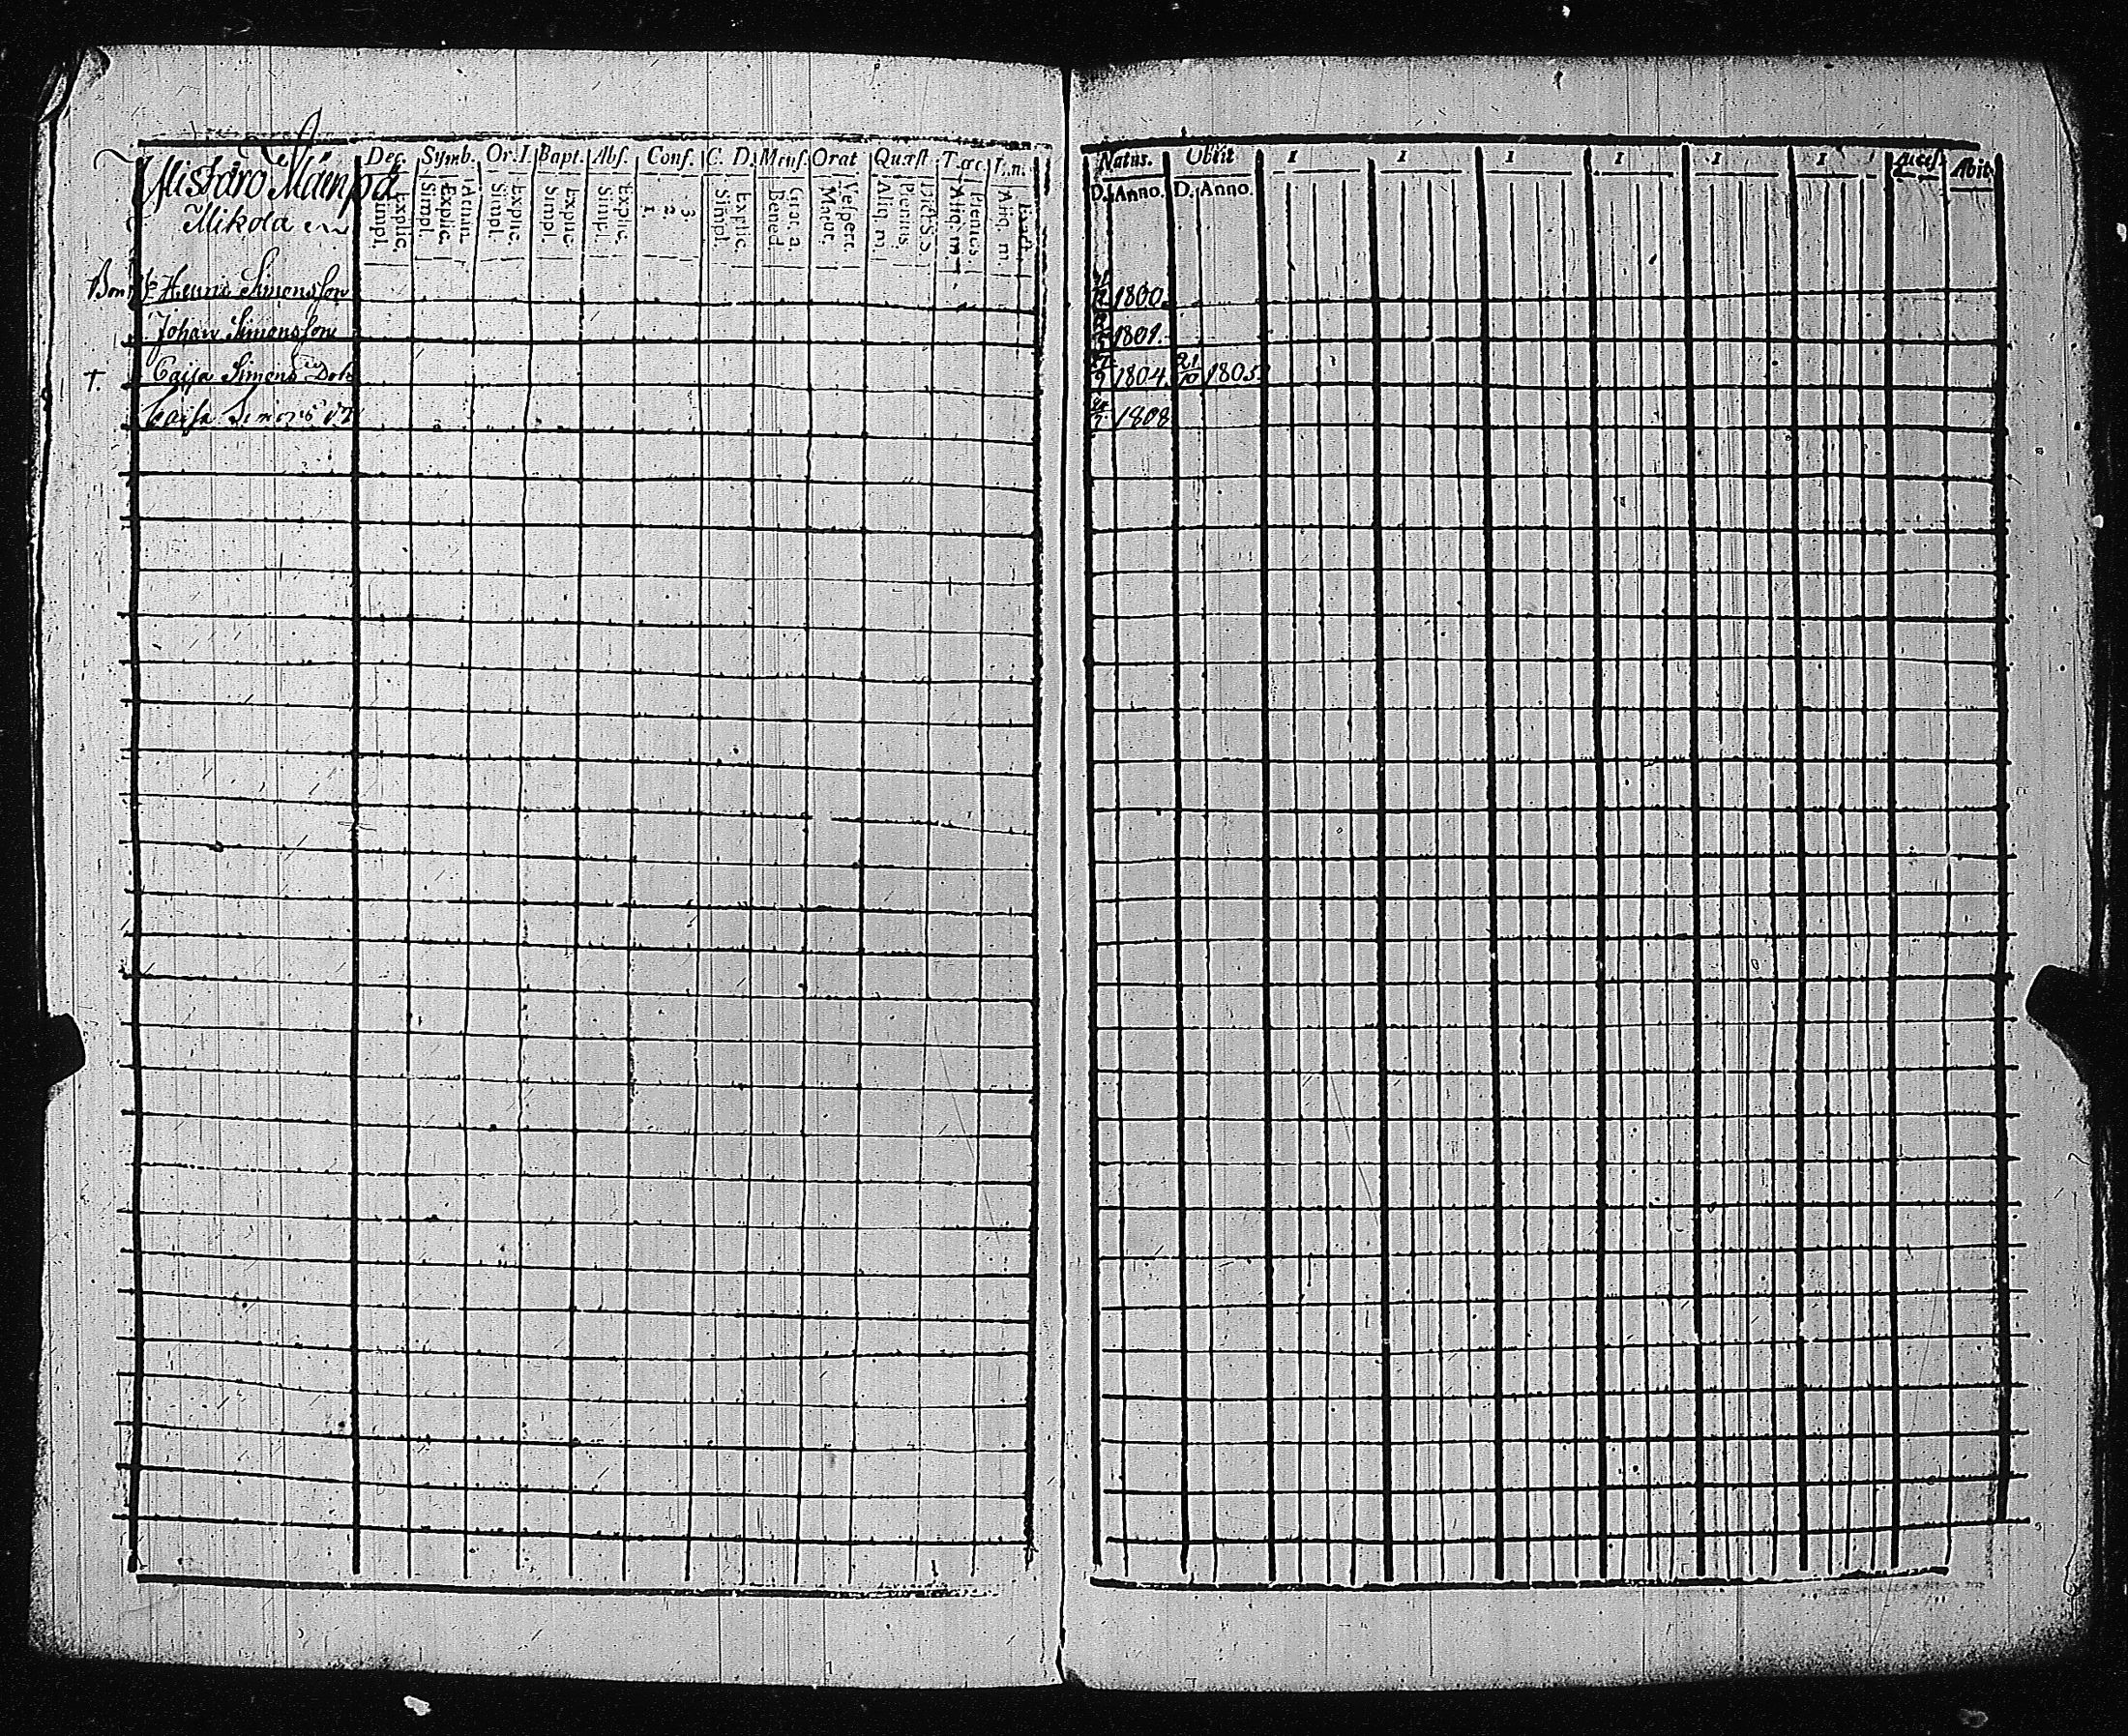 Mistaro Mainpä
Mikola
Dec. Symb. Or. I. Bapt. Abſ. Conf. C. D. Menſ. Orat Quæſt T.œc.
Explic. Simpl. Explic. Simpl. Explic. Simpl. Explic. Simpl. Explic. Simpl. 3. 2. 1. Explic. Simpl. Grat. a. Bened. Veſpert. Matut. Plenius. Aliq. m. Plenius. Aliq. m. Aliq. m.
Simonsſon
Johan Simonsſon
†. Caisa Simons Dotr
Caisa Simons
Natus. Obiit 1 1 1 1 1 1 Acceſſ. Abiit
D. Anno. D. Anno.
1800.
1801.
9 1804 21/10 1805
1808